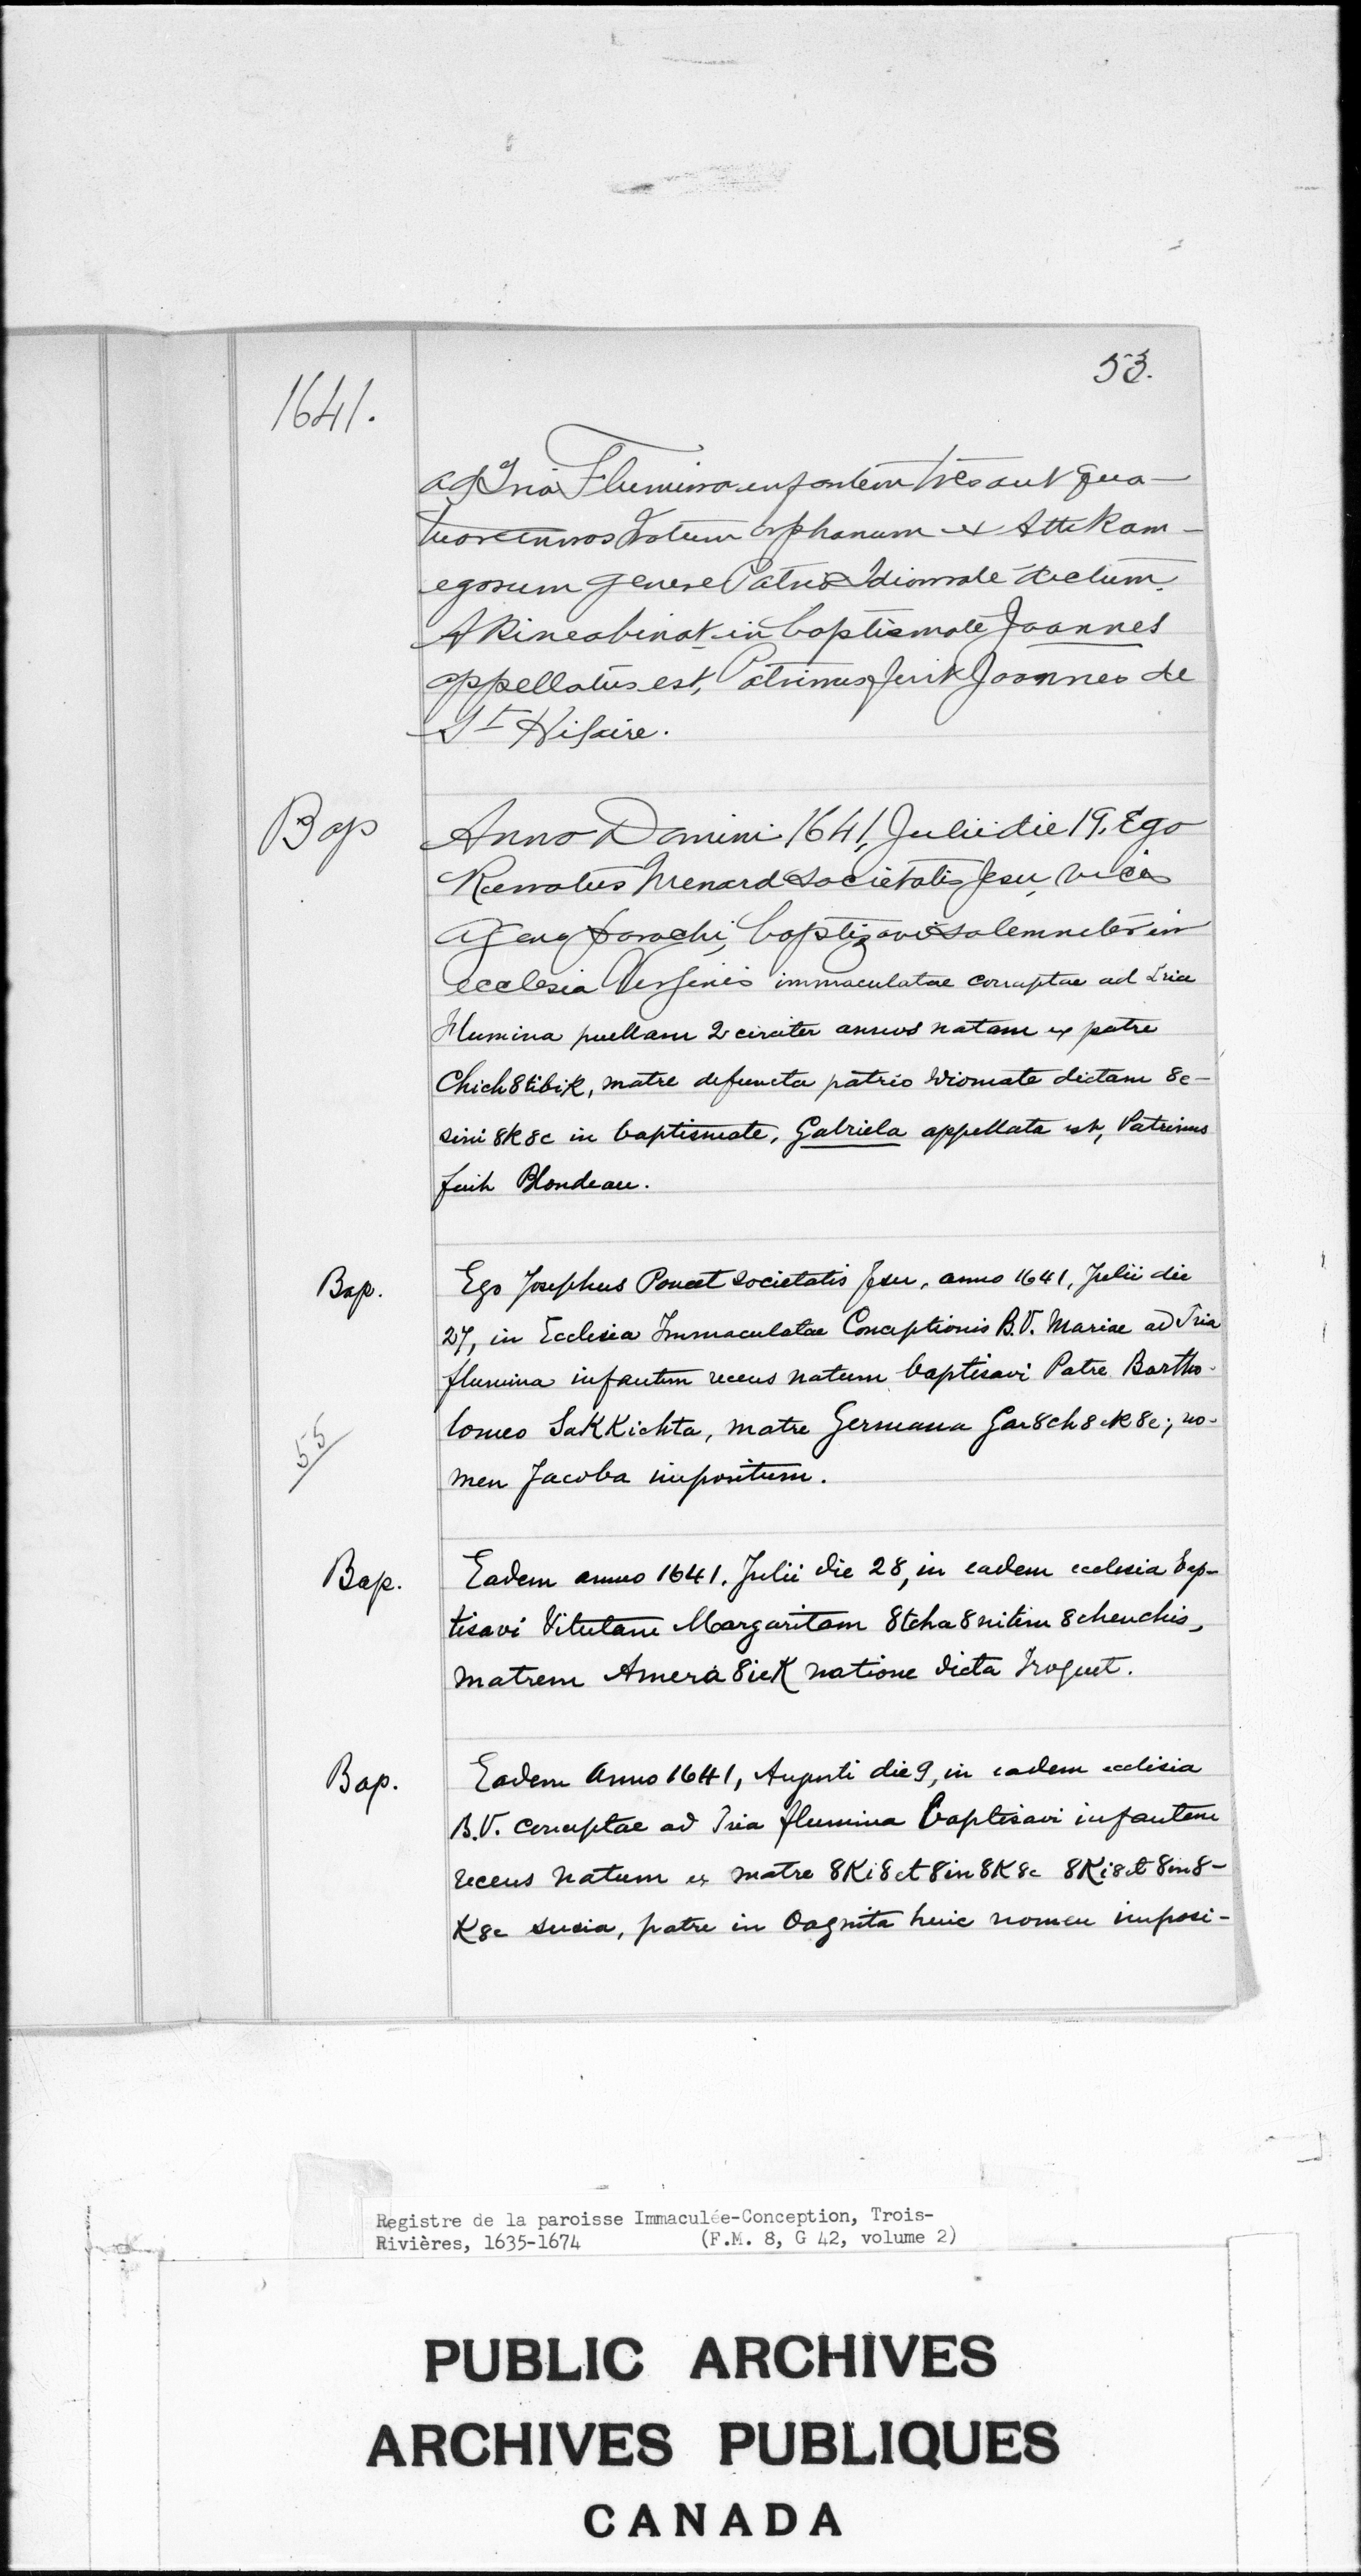 53.
1641.
ad Tria Flumina infantem tres aut qua-
tuor annos natum orphanum ex Attikam-
egorum genere Patrio Idiomate dictum
AKineabinak in baptismate Joannes
appellatus est, Patrinus fuit Joannes de
St Hilaire.
Bap
Anno Domini 1641, Julii die 19, Ego
Renatus Menard societatis Jesu, vices
agens parochi, baptizavi solemniter in
ecclesia Virginis immaculatae conceptae ad Tria
Flumina puellam 2 circiter annos natam ex patre
Chich8tibiK, matre defuncta patrio idiomate dictam 8e-
sini8K8e in baptismate, Gabriela appellata est, Patrinus
fuit Blondeau.
Bap.
Ego Josephus Poncet societatis Jesu, anno 1641, Julii die
27, in Ecclesia Immaculatae Conceptionis B.V. Mariae ad Tria
flumina infantem recens natum baptisavi Patre Bartho-
lomeo SaKKichta, matre Germana Gar8ch8eK8e; no-
men Jacoba impositum.
55
Bap.
Eadem anno 1641, Julii die 28, in eadem ecclesia bap-
tisavi Vitulam Margaritam 8tcha8nitim8chenchis,
matrem Amera8ieK natione dicta Iroquet.
Bap.
Eadem Anno 1641, Augusti die 9, in eadem ecclisia
B.V. conceptae ad Tria flumina baptisavi infantem
recens natum ex matre 8Ki8et8in8K8e 8Ki8et8in8-
K8e susia, patre in Oagnita huic nomen imposi-
Registre de la paroisse Immaculée-Conception, Trois-
Rivières, 1635-1674 (F.M. 8, G 42, volume 2)
PUBLIC ARCHIVES
ARCHIVES PUBLIQUES
CANADA